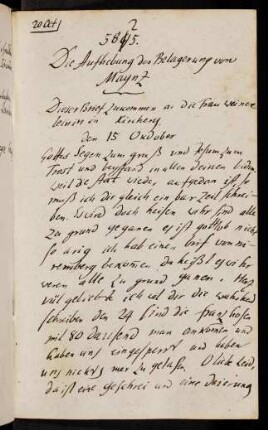 20 Oct
2
586/5.
Die Aufhebung der Belagerung von
Maynz
Dieser Brief zukommen an die Frau
in Kircheng
den 15 Ocktober
Gottes Segen zum gruß und Jesum zum
Trost und beystand in allen deinen leiden,
weil die Post wieder aufgedan ist, so
muß ich dir gleich ein bar Zeil schrei-
ben. Wird doch heisen wihr sind alle
zu grund gegangen es ist gottlob nicht
so arig ich hab einen brief von
nirmberg bekomen da heist es wihr
weren alle zu grund gangen. Herz
viel geliebte ich wil dir die wahrheit
schreiben den 24 sind die franzhosen
mit 80 dausend man ankomen und
haben uns eingesperrt und haben
uns nichts mer zu gelasen. O liebe Zeid,
da ist ein geschrei und eine